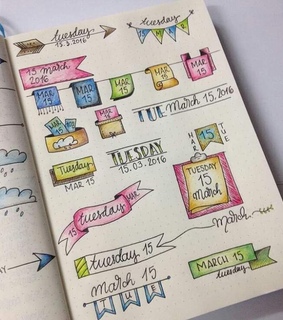 tuesday
15.3.2016
TUESDAY
15 march
2016
MAR
15
MAR
15
MAR
15
MAR
15
MAR
15
TUE March 15, 2016
MAR
15
TUESDAY
15.03.2016
MAR 15 TUE
Tuesday
MAR 15
TUESDAY
15
March
15 tuesday MAR
March
tuesday 15
march 15
TUE
MARCH 15
tuesday